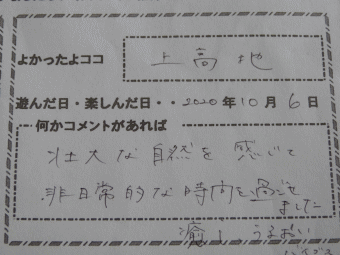 よかったよココ 上高地
遊んだ日・楽しんだ日・・2020年10月6日
何かコメントがあれば
壮大な自然を感じて
非日常的な時間を過ごせ
ました
癒し うるおい